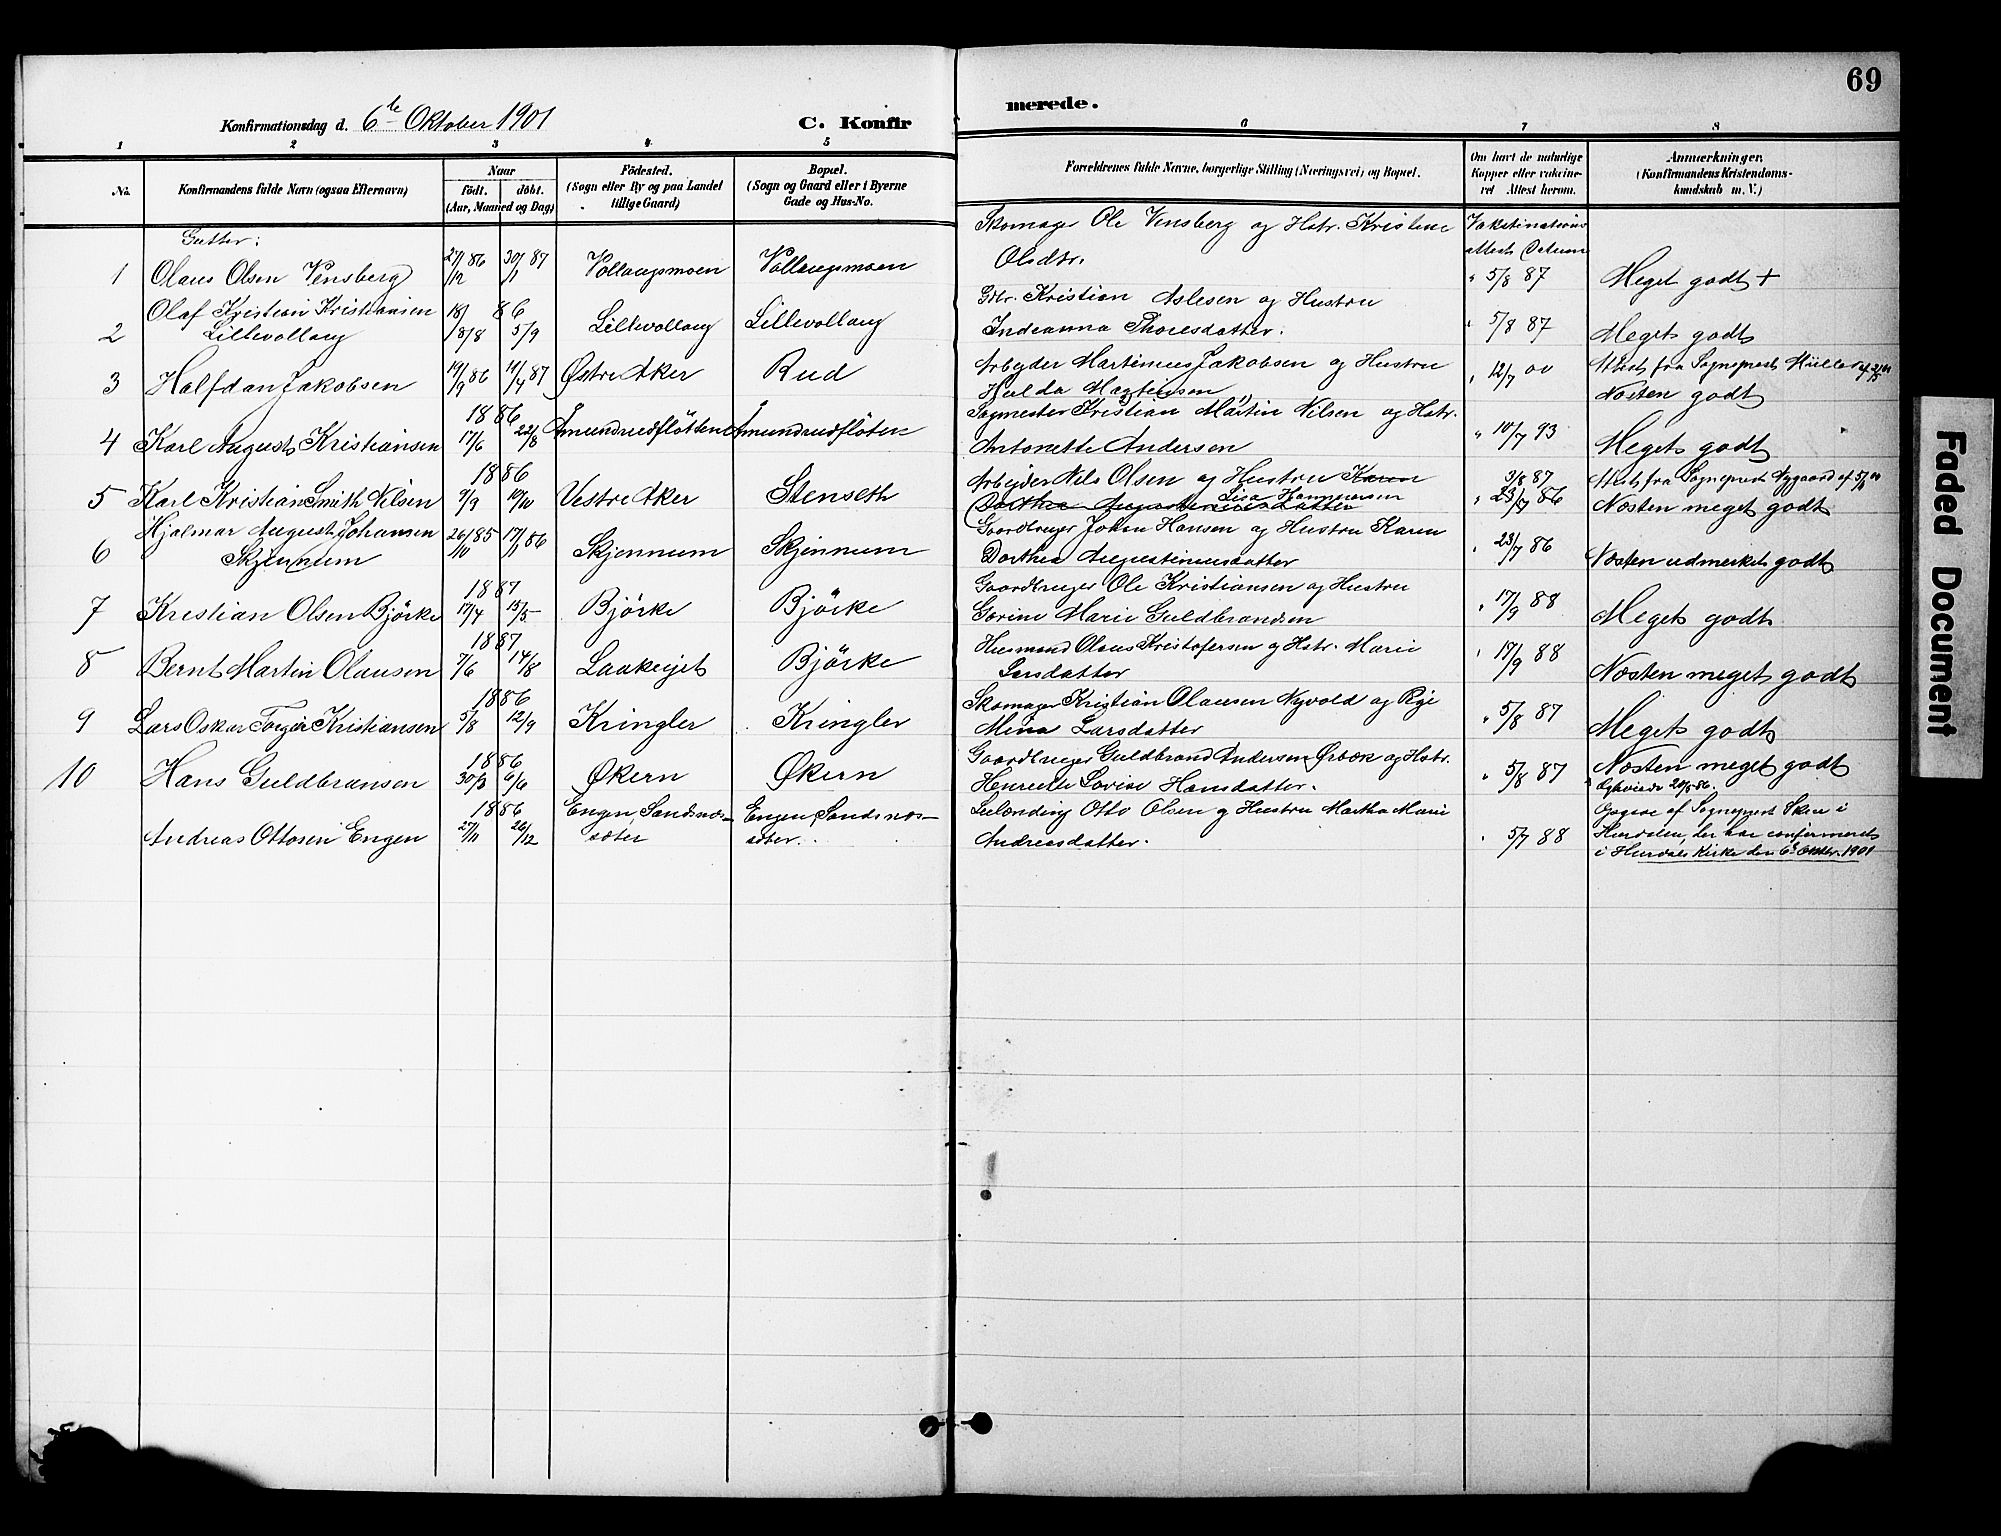 69
Konfirmationsdag d. 6te Oktober 1901
C. Konfirmerede.
1 2 3 4 5 6 7 8
No.
Konfirmandens fulde Navn (ogsaa Efternavn)
Naar
födt. döbt.
(Aar, Maaned og Dag)
Födested.
(Sogn eller By og paa Landet
tillige Gaard)
Bopæl.
(Sogn og Gaard eller i Byerne
Gade og Hus-No.
Forældrenes fulde Navne, borgerlige Stilling (Næringsvei) og Bopæl.
Om havt de naturlige
Kopper eller vakcine-
ret Attest herom.
Anmærkninger.
(Konfirmandens Kristendoms-
kundskab m. V.)
Gutter:
1 Olaus Olsen Vensberg 27/12 86 30/1 87 Vollaugsmoen Vollaugsmoen
Skomager Ole Vensberg og Hstr. Kristine
Olsdtr.
Vakstinations
attests Datum
" 5/8 87 Meget godt +
2 Olaf Kristian Kristiansen
Lillevollaug
18/8 86 5/9 Lillevollaug Lillevollaug
Gbr. Kristian Aslesen og Hustru
Indianna Thoresdatter.
" 5/8 87 Meget godt
3 Halfdan Jakobsen 19/9 86 11/4 87 Østre Aker Rud
Arbeyder Martinius Jakobsen og Hustru
Hulda Magtensen
" 12/7 00 Attest fra Sogneprest Müller af
Næsten godt
4 Karl August Kristiansen 1886 17/6 22/8 Åmundrudfløtten Åmundrudfløten
Sagmester Kristian Martin Nilsen og Hstr.
Antonette Andersen
" 10/7 93 Meget godt
5 Karl Kristian Smith Nilsen 1886 9/9 10/10 Vestre Aker Stenseth
Arbeyder Nils Olsen og Hustru Karen
Dorthea Augustinusdatter Lisa Hannevasen
3/8 87
" 23/7 86
Attest fra Sogneprest Nygaard af
Næsten meget godt
6 Hjalmar August Johansen
Skjennum
26/10 85 17/1 86 Skjennum Skjennum
Gaardbruger Johan Hansen og Hustru Karen
Dorthea Augustinusdatter
" 23/7 86 Næsten udmerket godt
7 Kristian Olsen Bjørke 1887 17/4 15/5 Bjørke Bjørke
Gaardbruger Ole Kristiansen og Hustru
Gorine Marie Guldbrandsen
" 17/9 88 Meget godt
8 Bernt Martin Olausen 1887 7/6 14/8 Laakeyet Bjørke
Husmand Olaus Kristofersen og Hstr. Marie
Larsdatter
" 17/9 88 Næsten meget godt
9 Lars Oskar Torger Kristiansen 1886 5/8 12/9 Kringler Kringler
Skomager Kristian Olausen Nyvold og Pige
Mina Larsdatter
" 5/8 87 Meget godt
10 Hans Guldbransen 1886 30/3 6/6 Økern Økern
Gaardbruger Guldbrand Andersen Ørbæk og Hstr.
Henriette Lovise Hansdatter.
" 5/8 87 Næsten meget godt
Andreas Ottosen Engen 1886 27/11 26/12
Engen, Sandsnes-
sæter
Engen Sandsnæs-
sæter.
Leilending Otto Olsen og Hustru Martha Marie
Andreasdatter.
" 5/7 88
Opgave af Sogneprest Skar i
Hurdalen, der har confirmeret
i Hurdals Kirke den 6te Oktbr. 1901
Faded Document